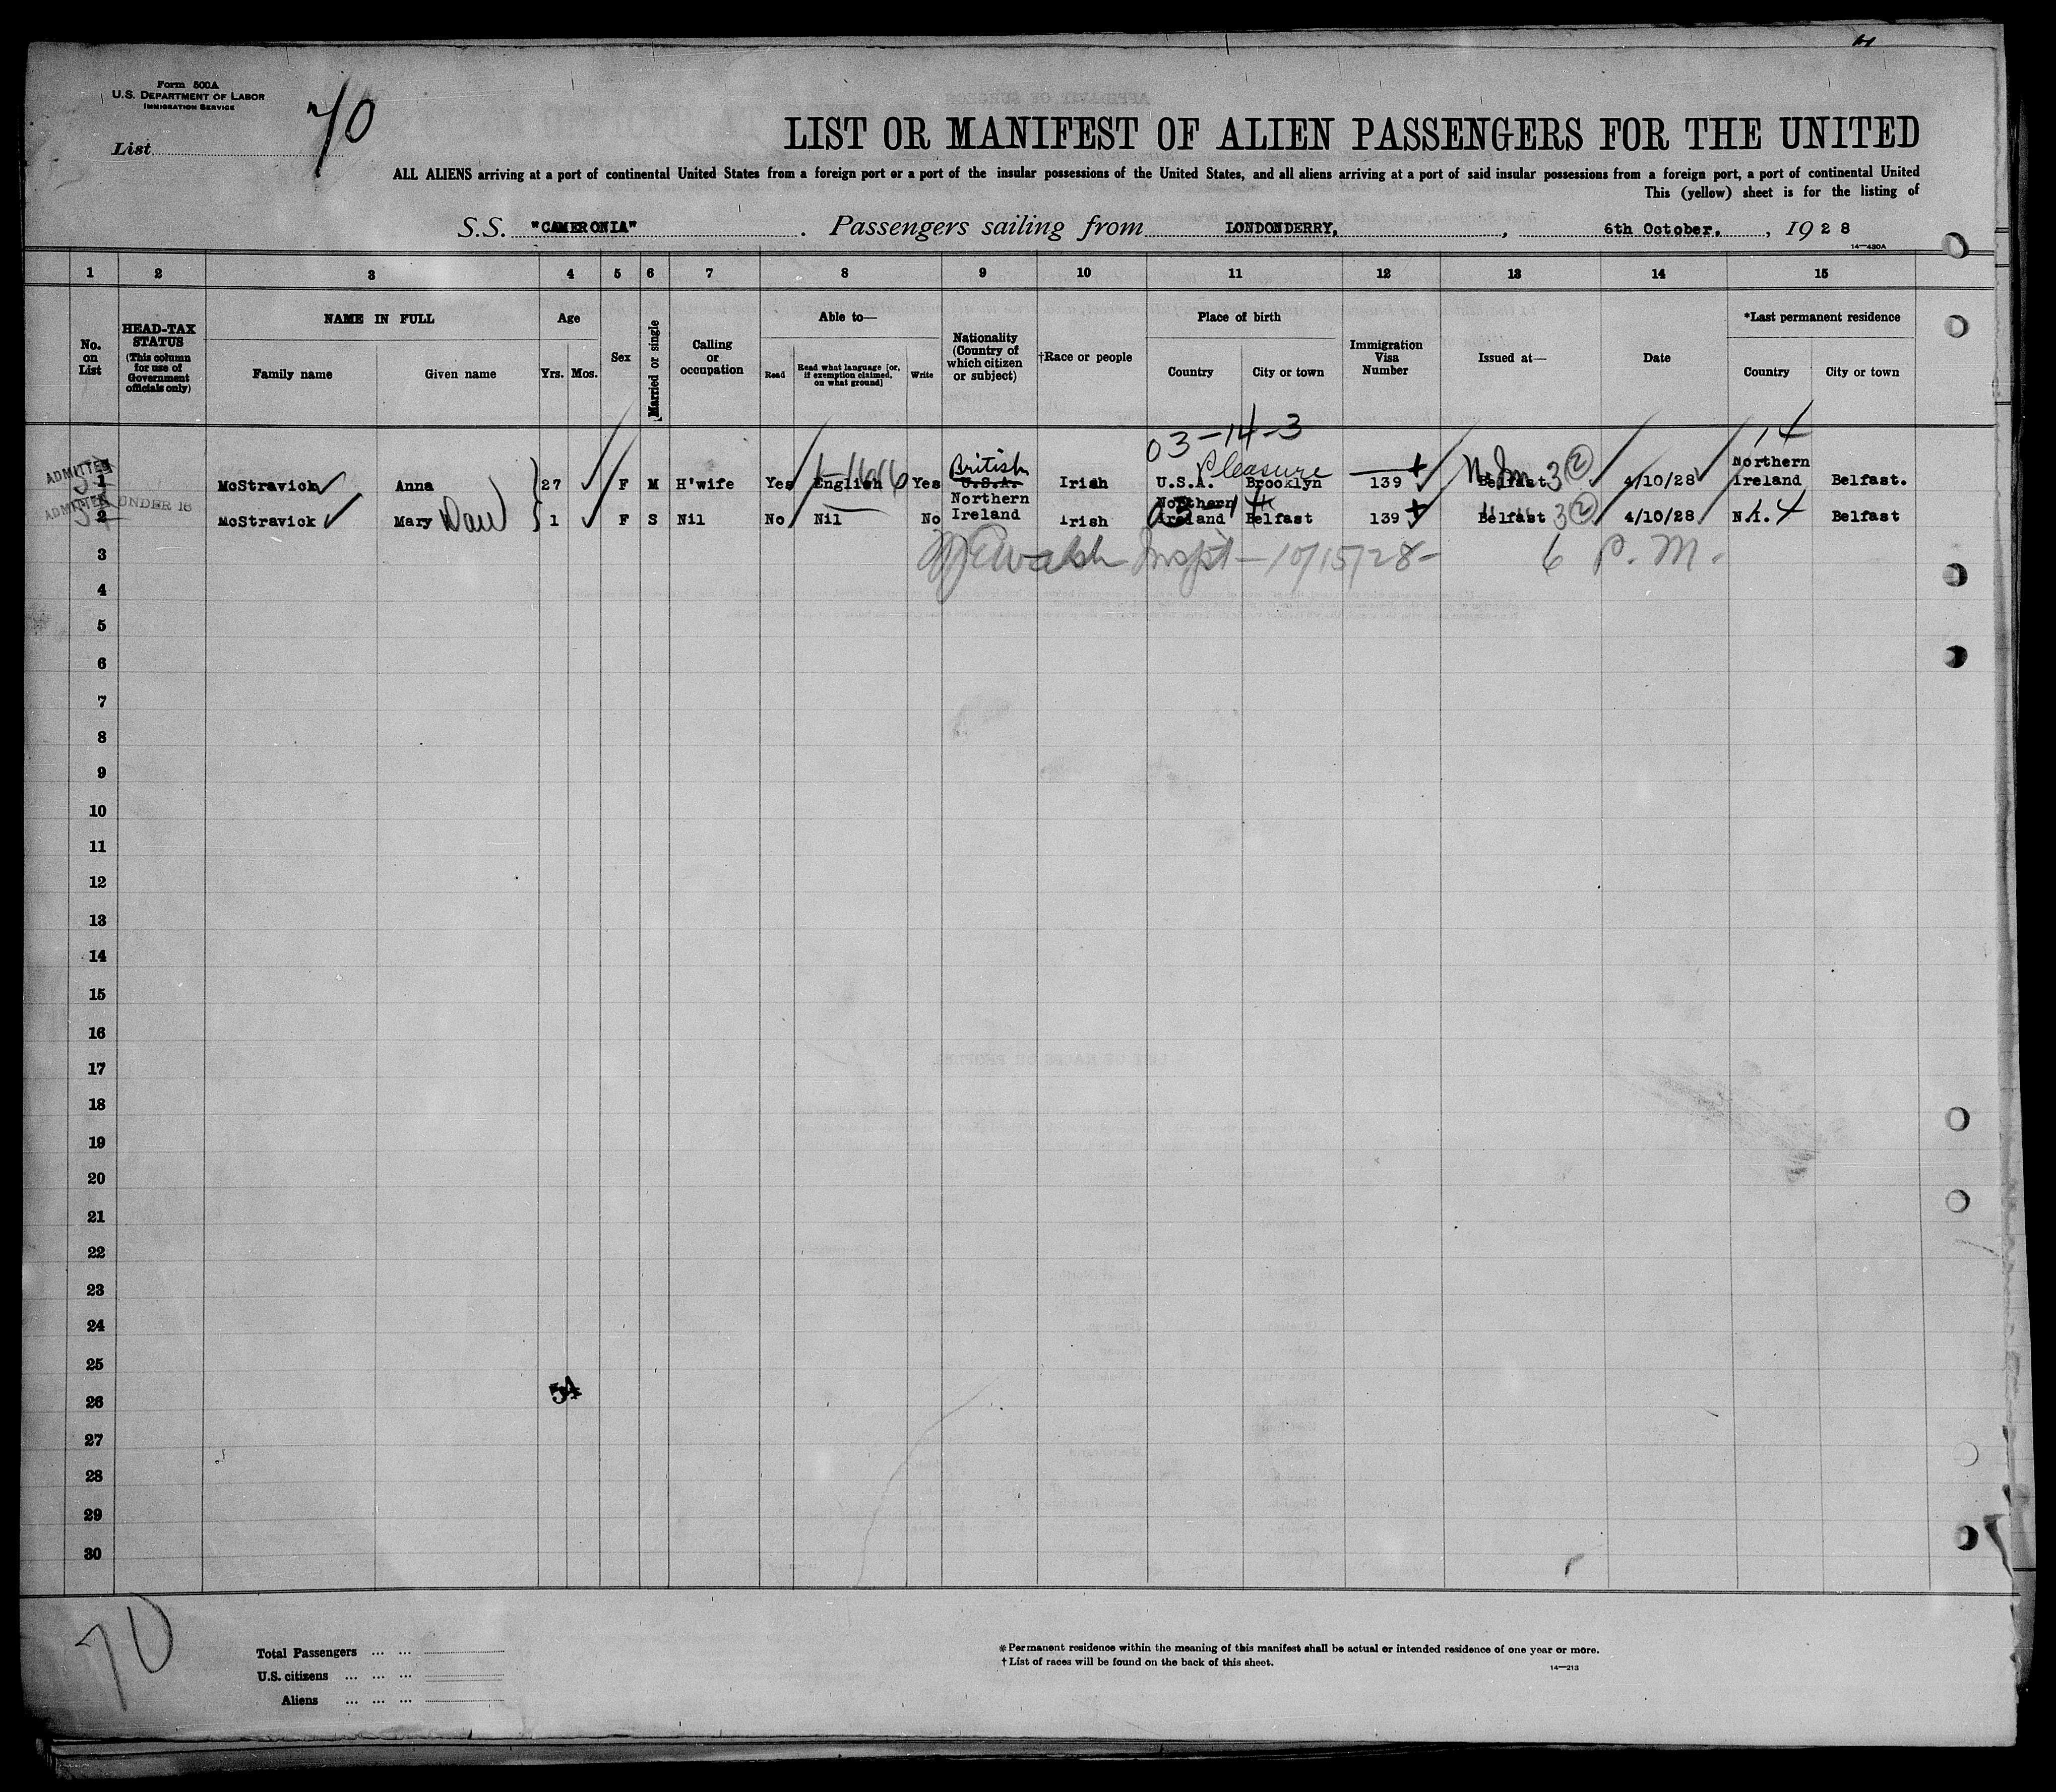 Form 500A
U.S. DEPARTMENT OF LABOR
IMMIGRATION SERVICE
List 70
LIST OR MANIFEST OF ALIEN PASSENGERS FOR THE UNITED
ALL ALIENS arriving at a port of continental United States from a foreign port or a port of the insular possessions of the United States, and all aliens arriving at a port of said insular possessions from a foreign port, a port of continental United
This (yellow) sheet is for the listing of
S.S. "CAMERONIA". Passengers sailing from LONDONDERRY, 6th October, 1928
14—430A
1 2 3 4 5 6 7 8 9 10 11 12 13 14 15
No. on List
HEAD-TAX STATUS
(This column for use of Government officials only)
NAME IN FULL
Family name Given name
Age
Yrs. Mos.
Sex
Married or single
Calling or occupation
Able to—
Read
Read what language [or, if exemption claimed, on what ground]
Write
Nationality (Country of which citizen or subject)
†Race or people
Place of birth
Country City or town
Immigration Visa Number
Issued at—
Date
*Last permanent residence
Country City or town
03-14-3 14
ADMITTED 1 McStravick Anna 27 F M H'wife Yes English Yes British U.S.A. Irish U.S.A. Pleasure Brooklyn 139 Belfast 3 2 4/10/28 Northern Ireland Belfast.
ADMITTED UNDER 16 2 McStravick Mary Dau 1 F S Nil No Nil No Northern Ireland Irish Northern Ireland Belfast 139 Belfast 3 2 4/10/28 N.I. 4 Belfast
3 Walsh Inspt - 10/15/28- 6 P.M.
4
5
6
7
8
9
10
11
12
13
14
15
16
17
18
19
20
21
22
23
24
25
26
27
28
29
30
70
Total Passengers ... ...
U.S. citizens ... ... ...
Aliens ... ... ...
*Permanent residence within the meaning of this manifest shall be actual or intended residence of one year or more.
†List of races will be found on the back of this sheet.
14—213